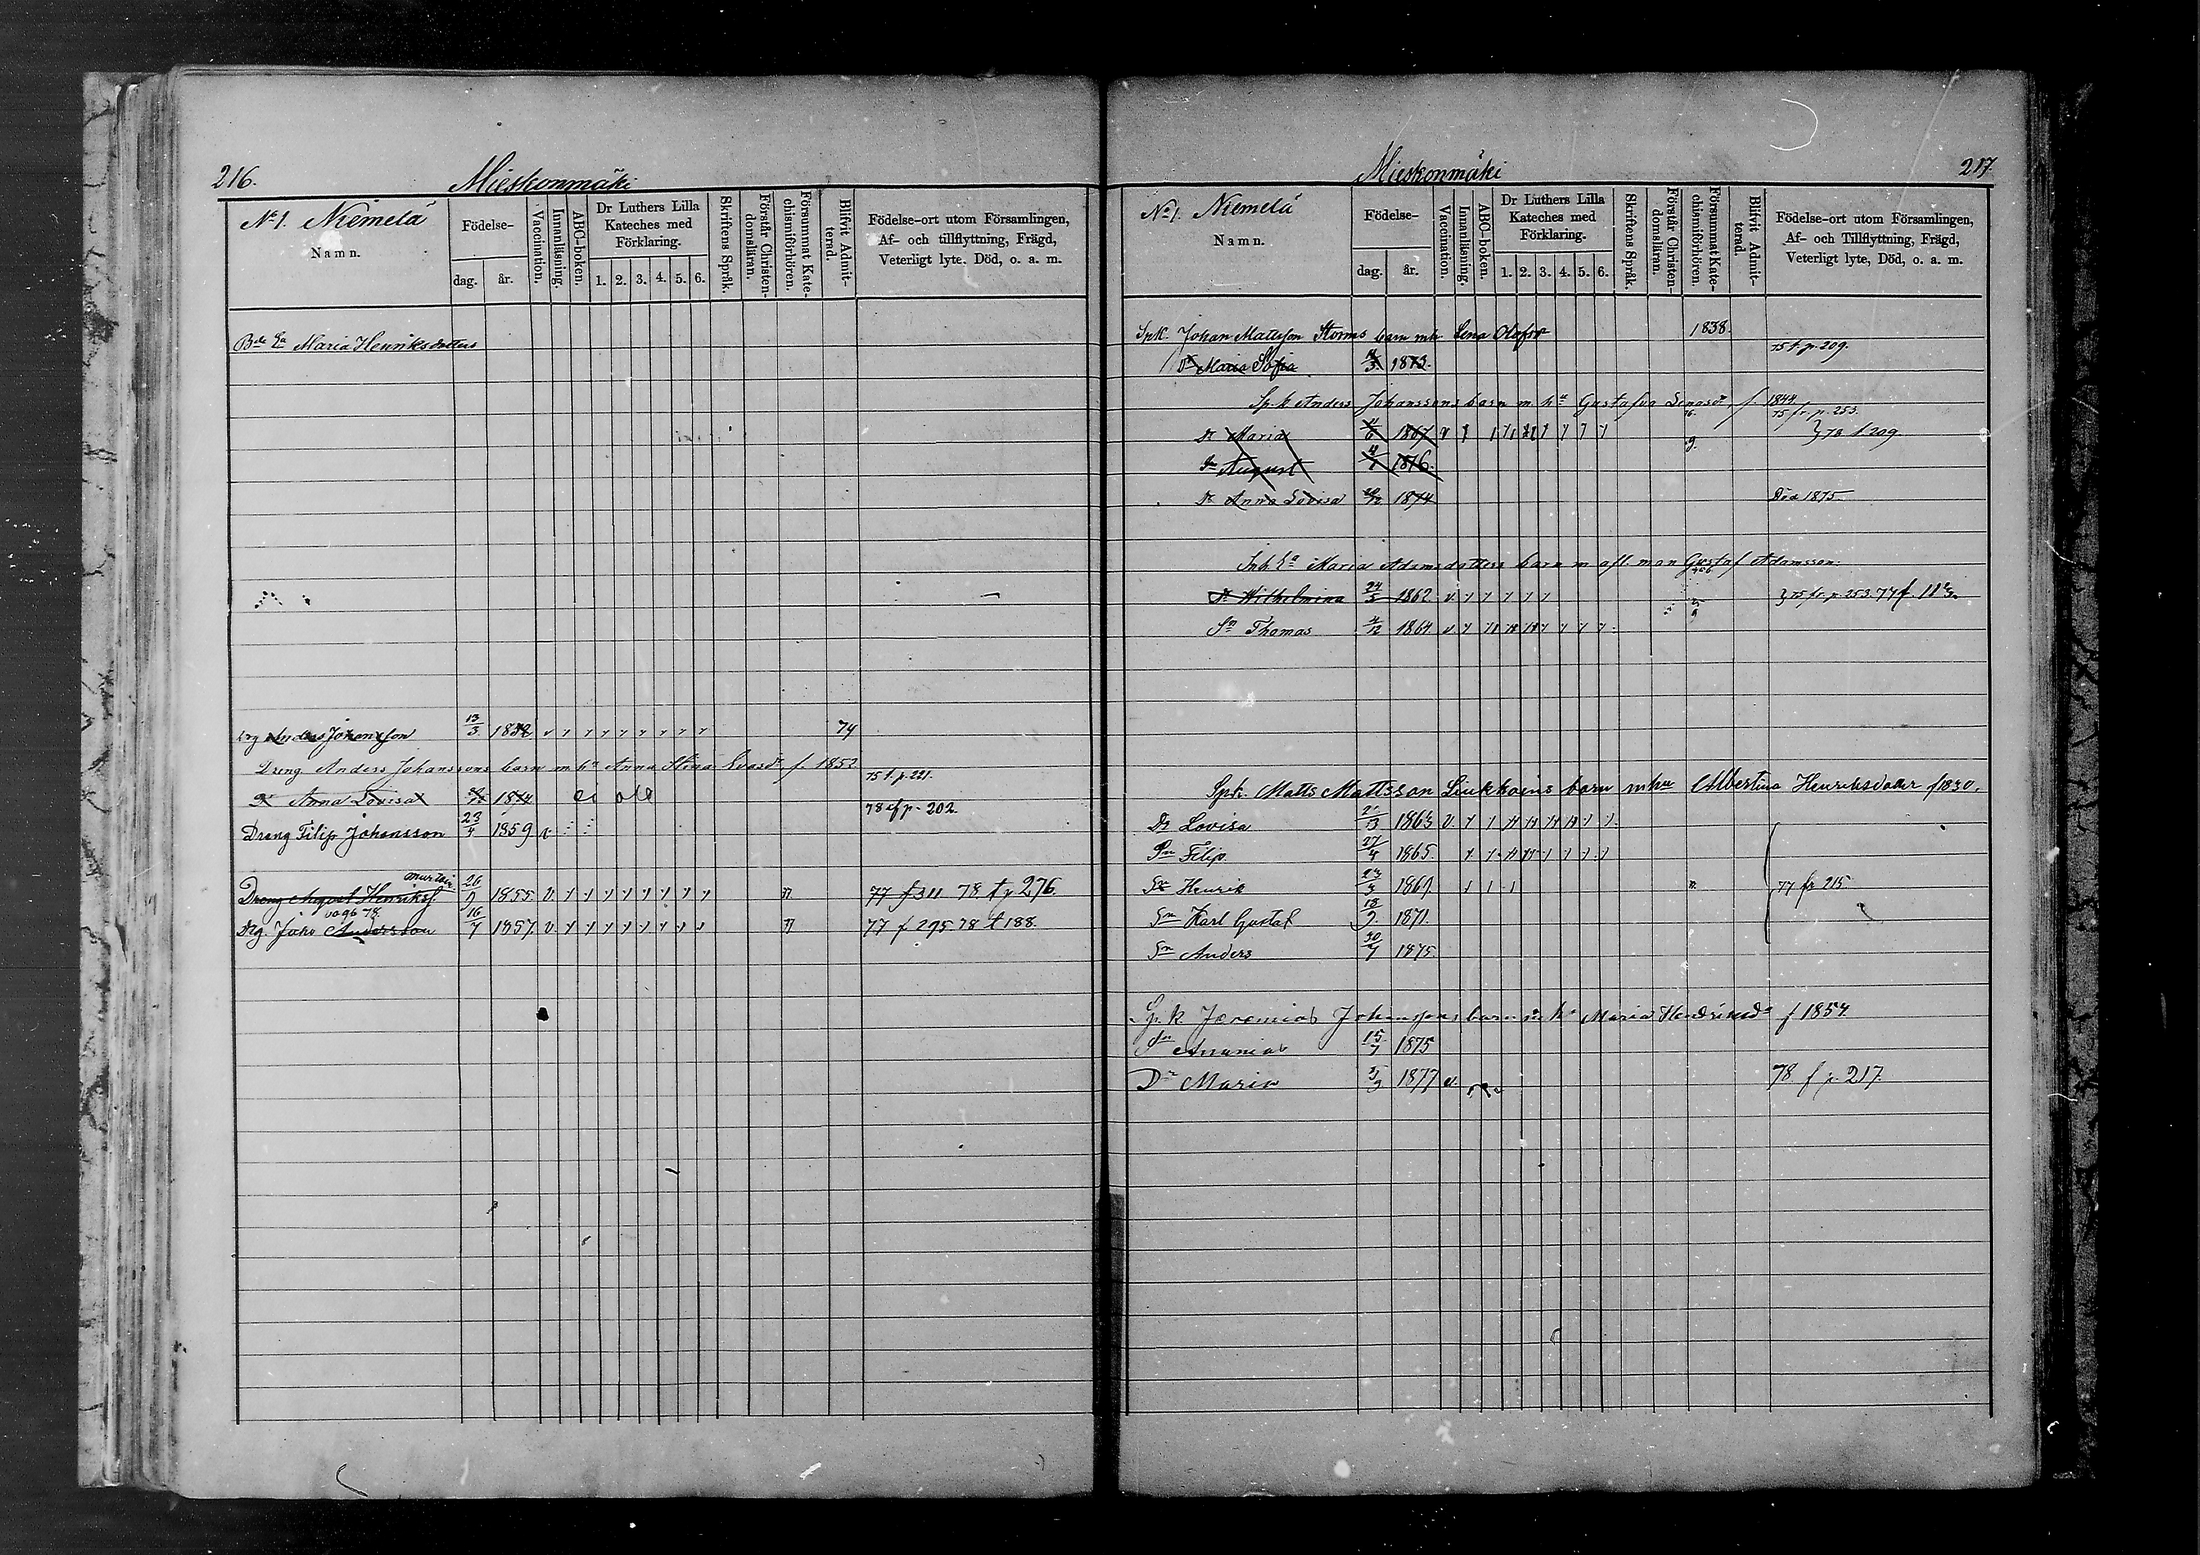 216.
Mieskonmäki
No 1. Niemelä
Namn.
Födelse-
dag.
år.
Vaccination.
Innanläsning.
ABC-boken.
Dr Luthers Lilla
Kateches med
Förklaring.
1. 2. 3. 4. 5. 6.
Skriftens Språk.
Förstår Christen-
domsläran.
Försummat Kate-
chismiförhören.
Blifvit Admit-
terad.
Födelse-ort utom Församlingen,
Af- och tillflyttning, Frägd,
Veterligt lyte. Död, o. a. m.
Maria Henriksdotters
Anders Johansson 13/3 74
Dreng Anders Johanssons barn m hu Anna Stina f 1852
75 f. p. 221.
Dr Anna Lovisa 1874
78 p. 202.
Dreng Filip Johansson 23/4 1859 v
Dreng August Henriks. 26/9 1855 v 77 f 311 78 t p 276
Drg. Joho Andersson 16/7 1857 v 77 f 295 78 t 188.
Mieskonmäki
217.
No 1. Niemelä
Namn.
Födelse-
dag.
år.
Vaccination.
Innanläsning.
ABC-boken.
Dr Luthers Lilla
Kateches med
Förklaring.
1. 2. 3. 4. 5. 6.
Skriftens Språk.
Förstår Christen-
domsläran.
Försummat Kate-
chismiförhören.
Blifvit Admit-
terad.
Födelse-ort utom Församlingen,
Af- och Tillflyttning, Frägd,
Veterligt lyte, Död, o. a. m.
Spk. Johan Mattsson Storms barn mh Lena 1838.
75 t. p. 209.
Dr Maria Sofia 1873.
Spk Anders Johanssons barn m hu Gustafva f. 1844
75 fr. p. 253.
Dr Maria 1867 v 78 t 209
Sn August 1876.
Dr Anna Lovisa 1874 Död 1875
Inh. Ea Maria Adamsdotters barn m afl. man Gustaf Adamsson.
Dr Wilhelmina 24/5 1862 v 75 fr. p. 253. 77 f.
Sn Thomas 4/12 1864 v
Spk. Matts Mattsson barn mhu Albertina Henriksdotter f 1830.
Dr Lovisa 1863 v.
Sn Filip. 21/4 1865.
Sn Henrik 23/3 1869 77 fr 215
Sn Karl Gustaf 18/9 1871.
Sn Anders 30/7 1875
Spk Jeremias Johanssons barn m hu Maria f 1854
Sn Ananias 15/7 1875
Dr Maria 1877 v. 78 f p. 217.